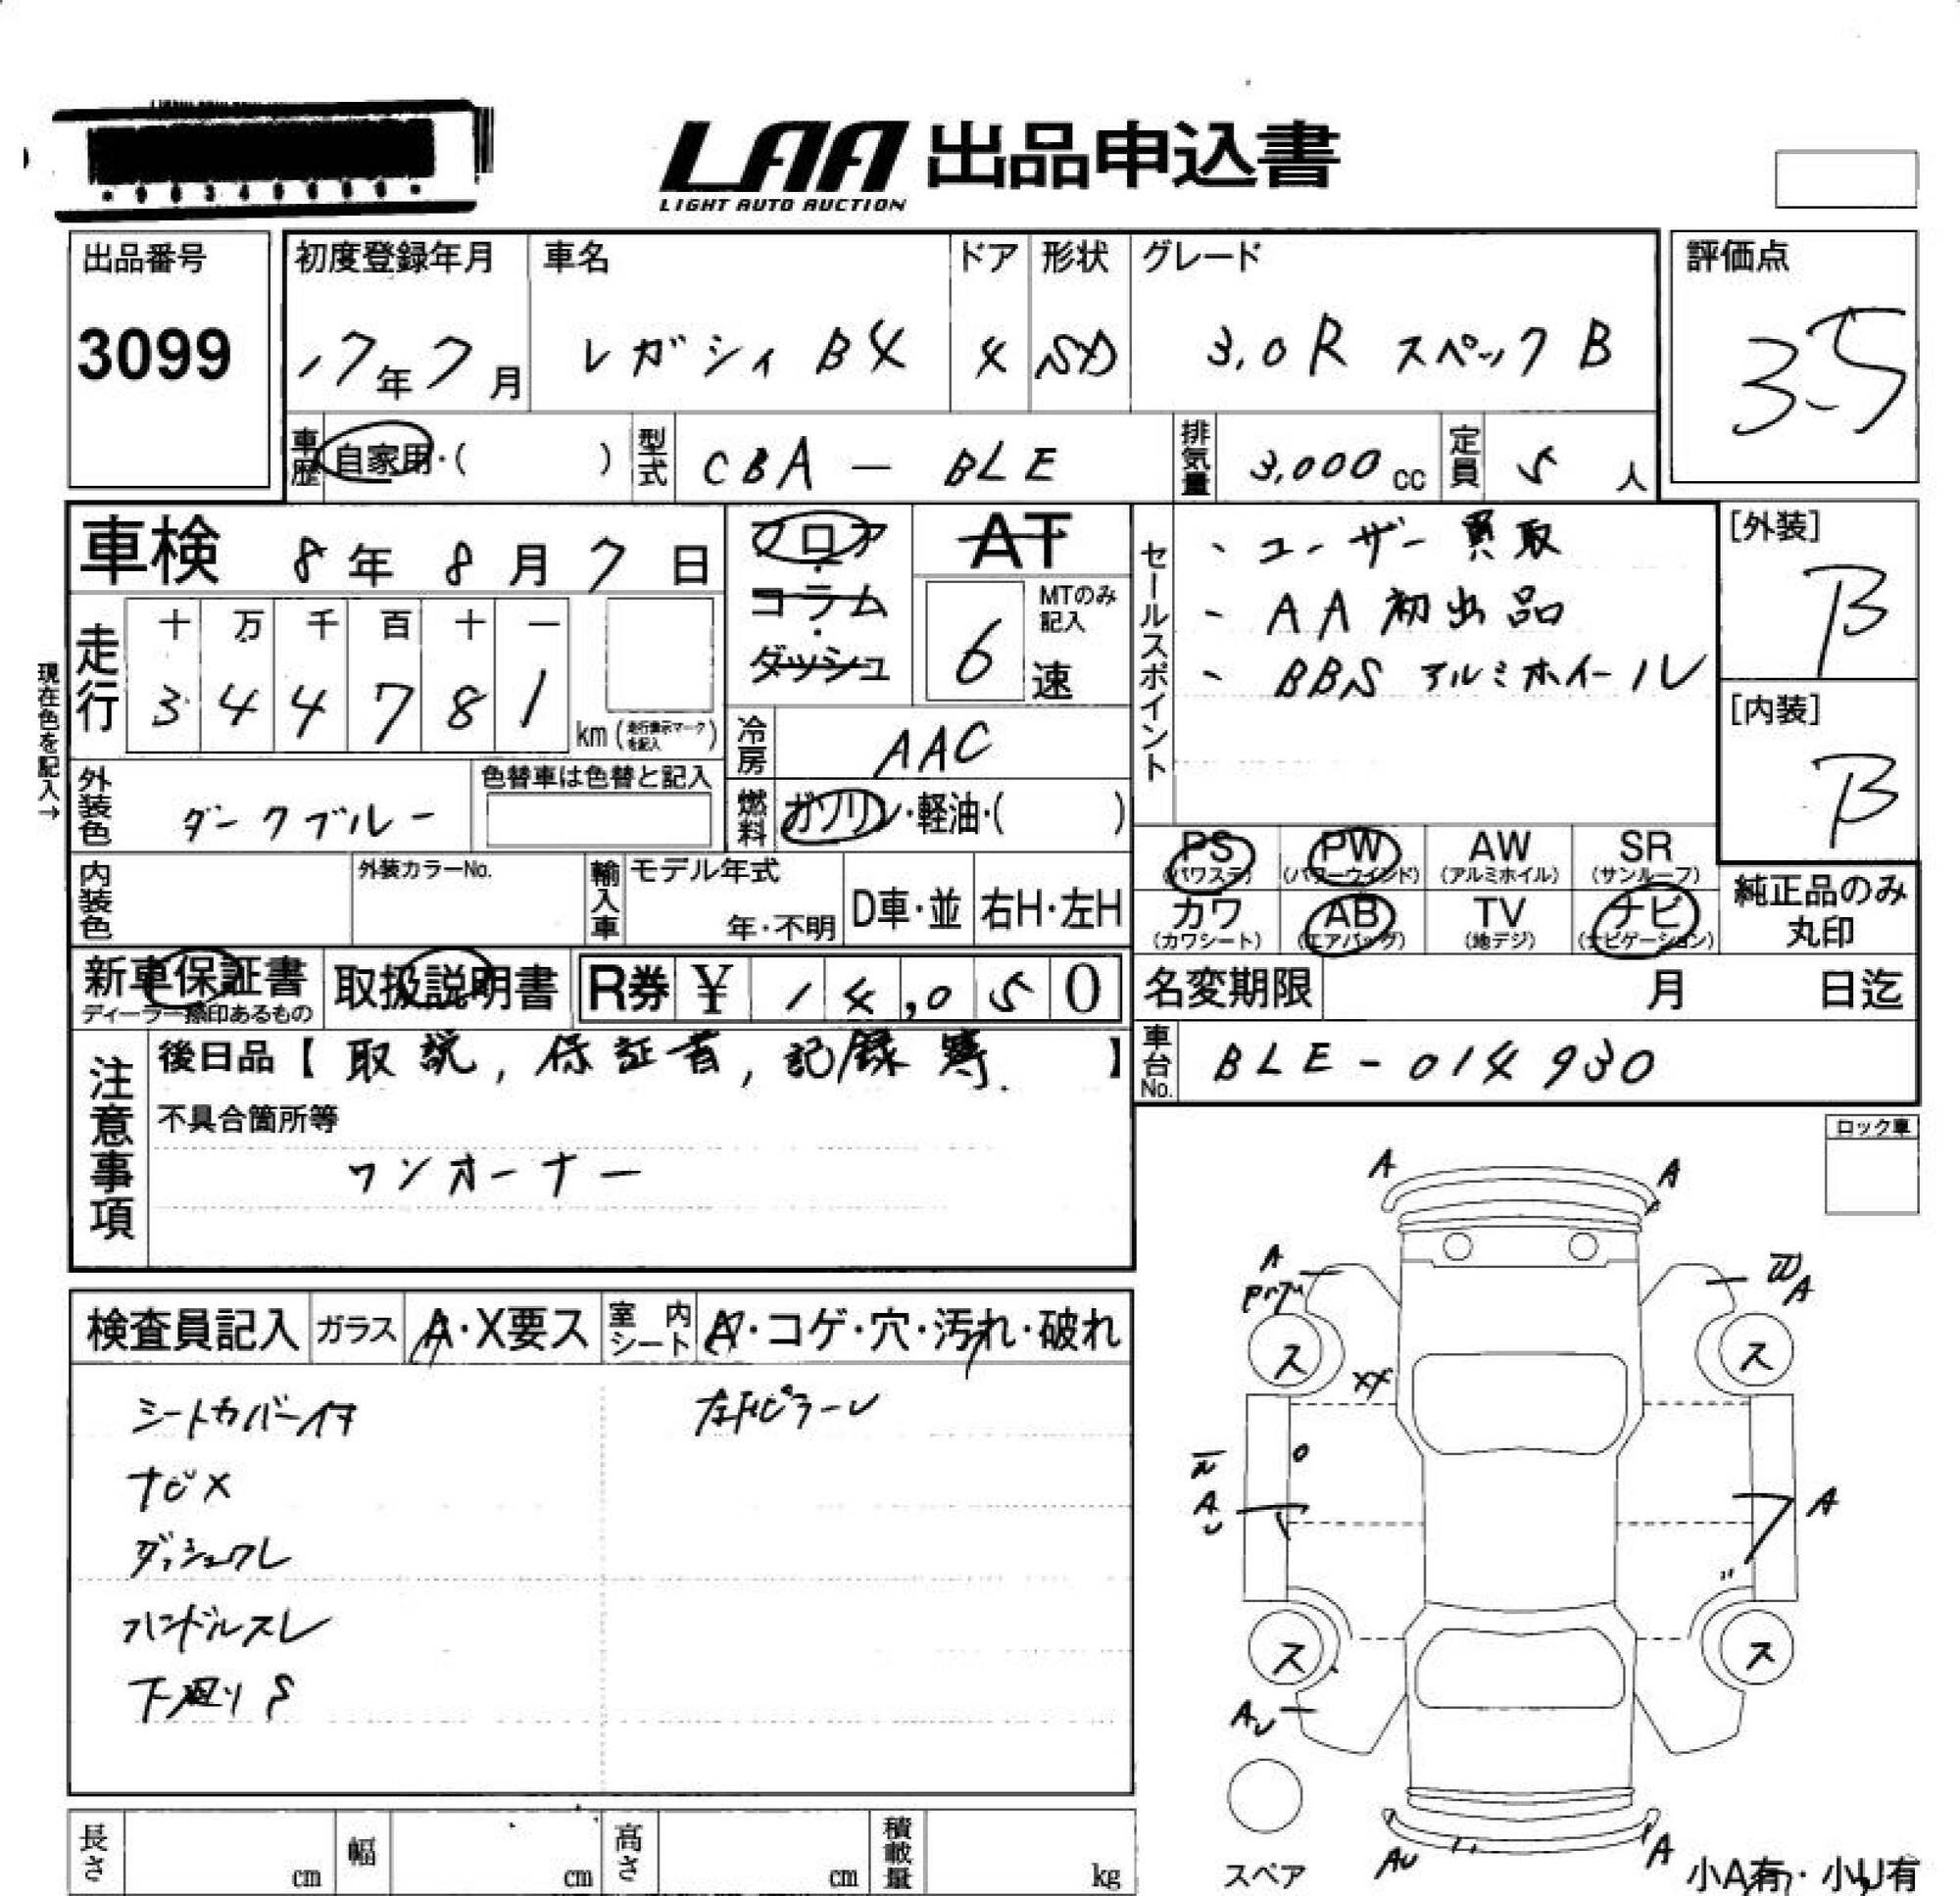 LAA 出品申込書
LIGHT AUTO AUCTION
出品番号
3099
初度登録年月 車名 ドア 形状 グレード
17年7月 レガシィ B4 4 SD 3.0R スペックB
評価点
3.5
車歴 自家用・( ) 型式 CBA - BLE 排気量 3,000cc 定員 5人
車検 8年8月7日
フロア・コラム・ダッシュ
AT
MTのみ記入
6速
セールスポイント
、ユーザー買取
、AA初出品
、BBS アルミホイール
[外装]
B
[内装]
B
現在色を記入→
走行 十 万 千 百 十 一
3 4 4 7 8 1 km (走行表示マークを記入)
冷房 AAC
外装色 ダークブルー
色替車は色替と記入
燃料 ガソリン・軽油・( )
内装色 外装カラーNo. 輸入車 モデル年式 年・不明 D車・並 右H・左H
PS (パワステ) PW (パワーウインド) AW (アルミホイル) SR (サンルーフ)
カワ (カワシート) AB (エアバッグ) TV (地デジ) ナビ (ナビゲーション)
純正品のみ丸印
新車保証書 取扱説明書 R券 ¥ 14,050
ディーラー捺印あるもの
名変期限 月 日迄
車台No. BLE-014930
注意事項
後日品【取説, 保証書, 記録簿】
不具合箇所等
ワンオーナー
ロック車
検査員記入 ガラス A・X要ス 室内シート A・コゲ・穴・汚れ・破れ
シートカバー付
ナビX
ダッシュワレ
ハンドルスレ
下廻りS
A A
A
A
XX
ス ス
A
U
A
ス ス
AU
AU A
スペア
小A有・小U有
長さ cm 幅 cm 高さ cm 積載量 kg